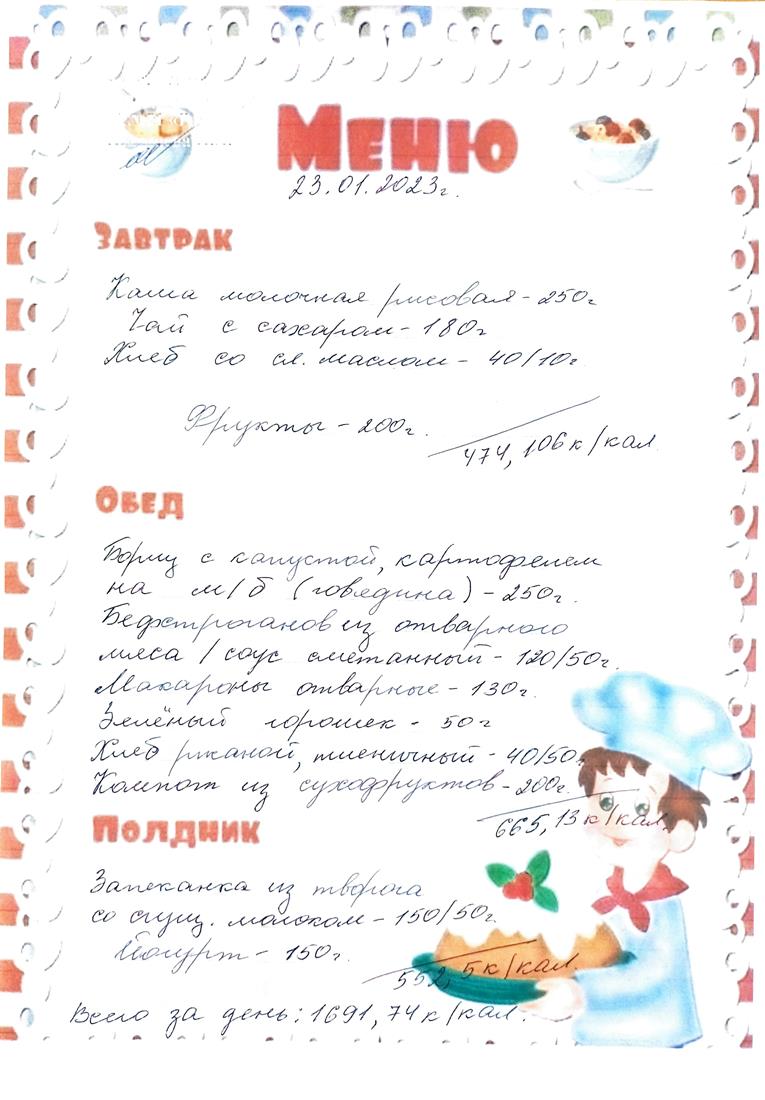 Меню
23.01.2023г.
Завтрак
Каша молочная рисовая - 250г
Чай с сахаром - 180г
Хлеб со сл. маслом - 40/10г
Фрукты - 200г.
474,106 к/кал
Обед
Борщ с капустой, картофелем
на м/б (говядина) - 250г.
Бефстроганов из отварного
мяса / соус сметанный - 120/50г.
Макароны отварные - 130г.
Зелёный горошек - 50г
Хлеб ржаной, пшеничный - 40/50г
Компот из сухофруктов - 200г.
665,13 к/кал.
Полдник
Запеканка из творога
со сгущ. молоком - 150/50г.
Йогурт - 150г.
552,5 к/кал.
Всего за день: 1691,74 к/кал.